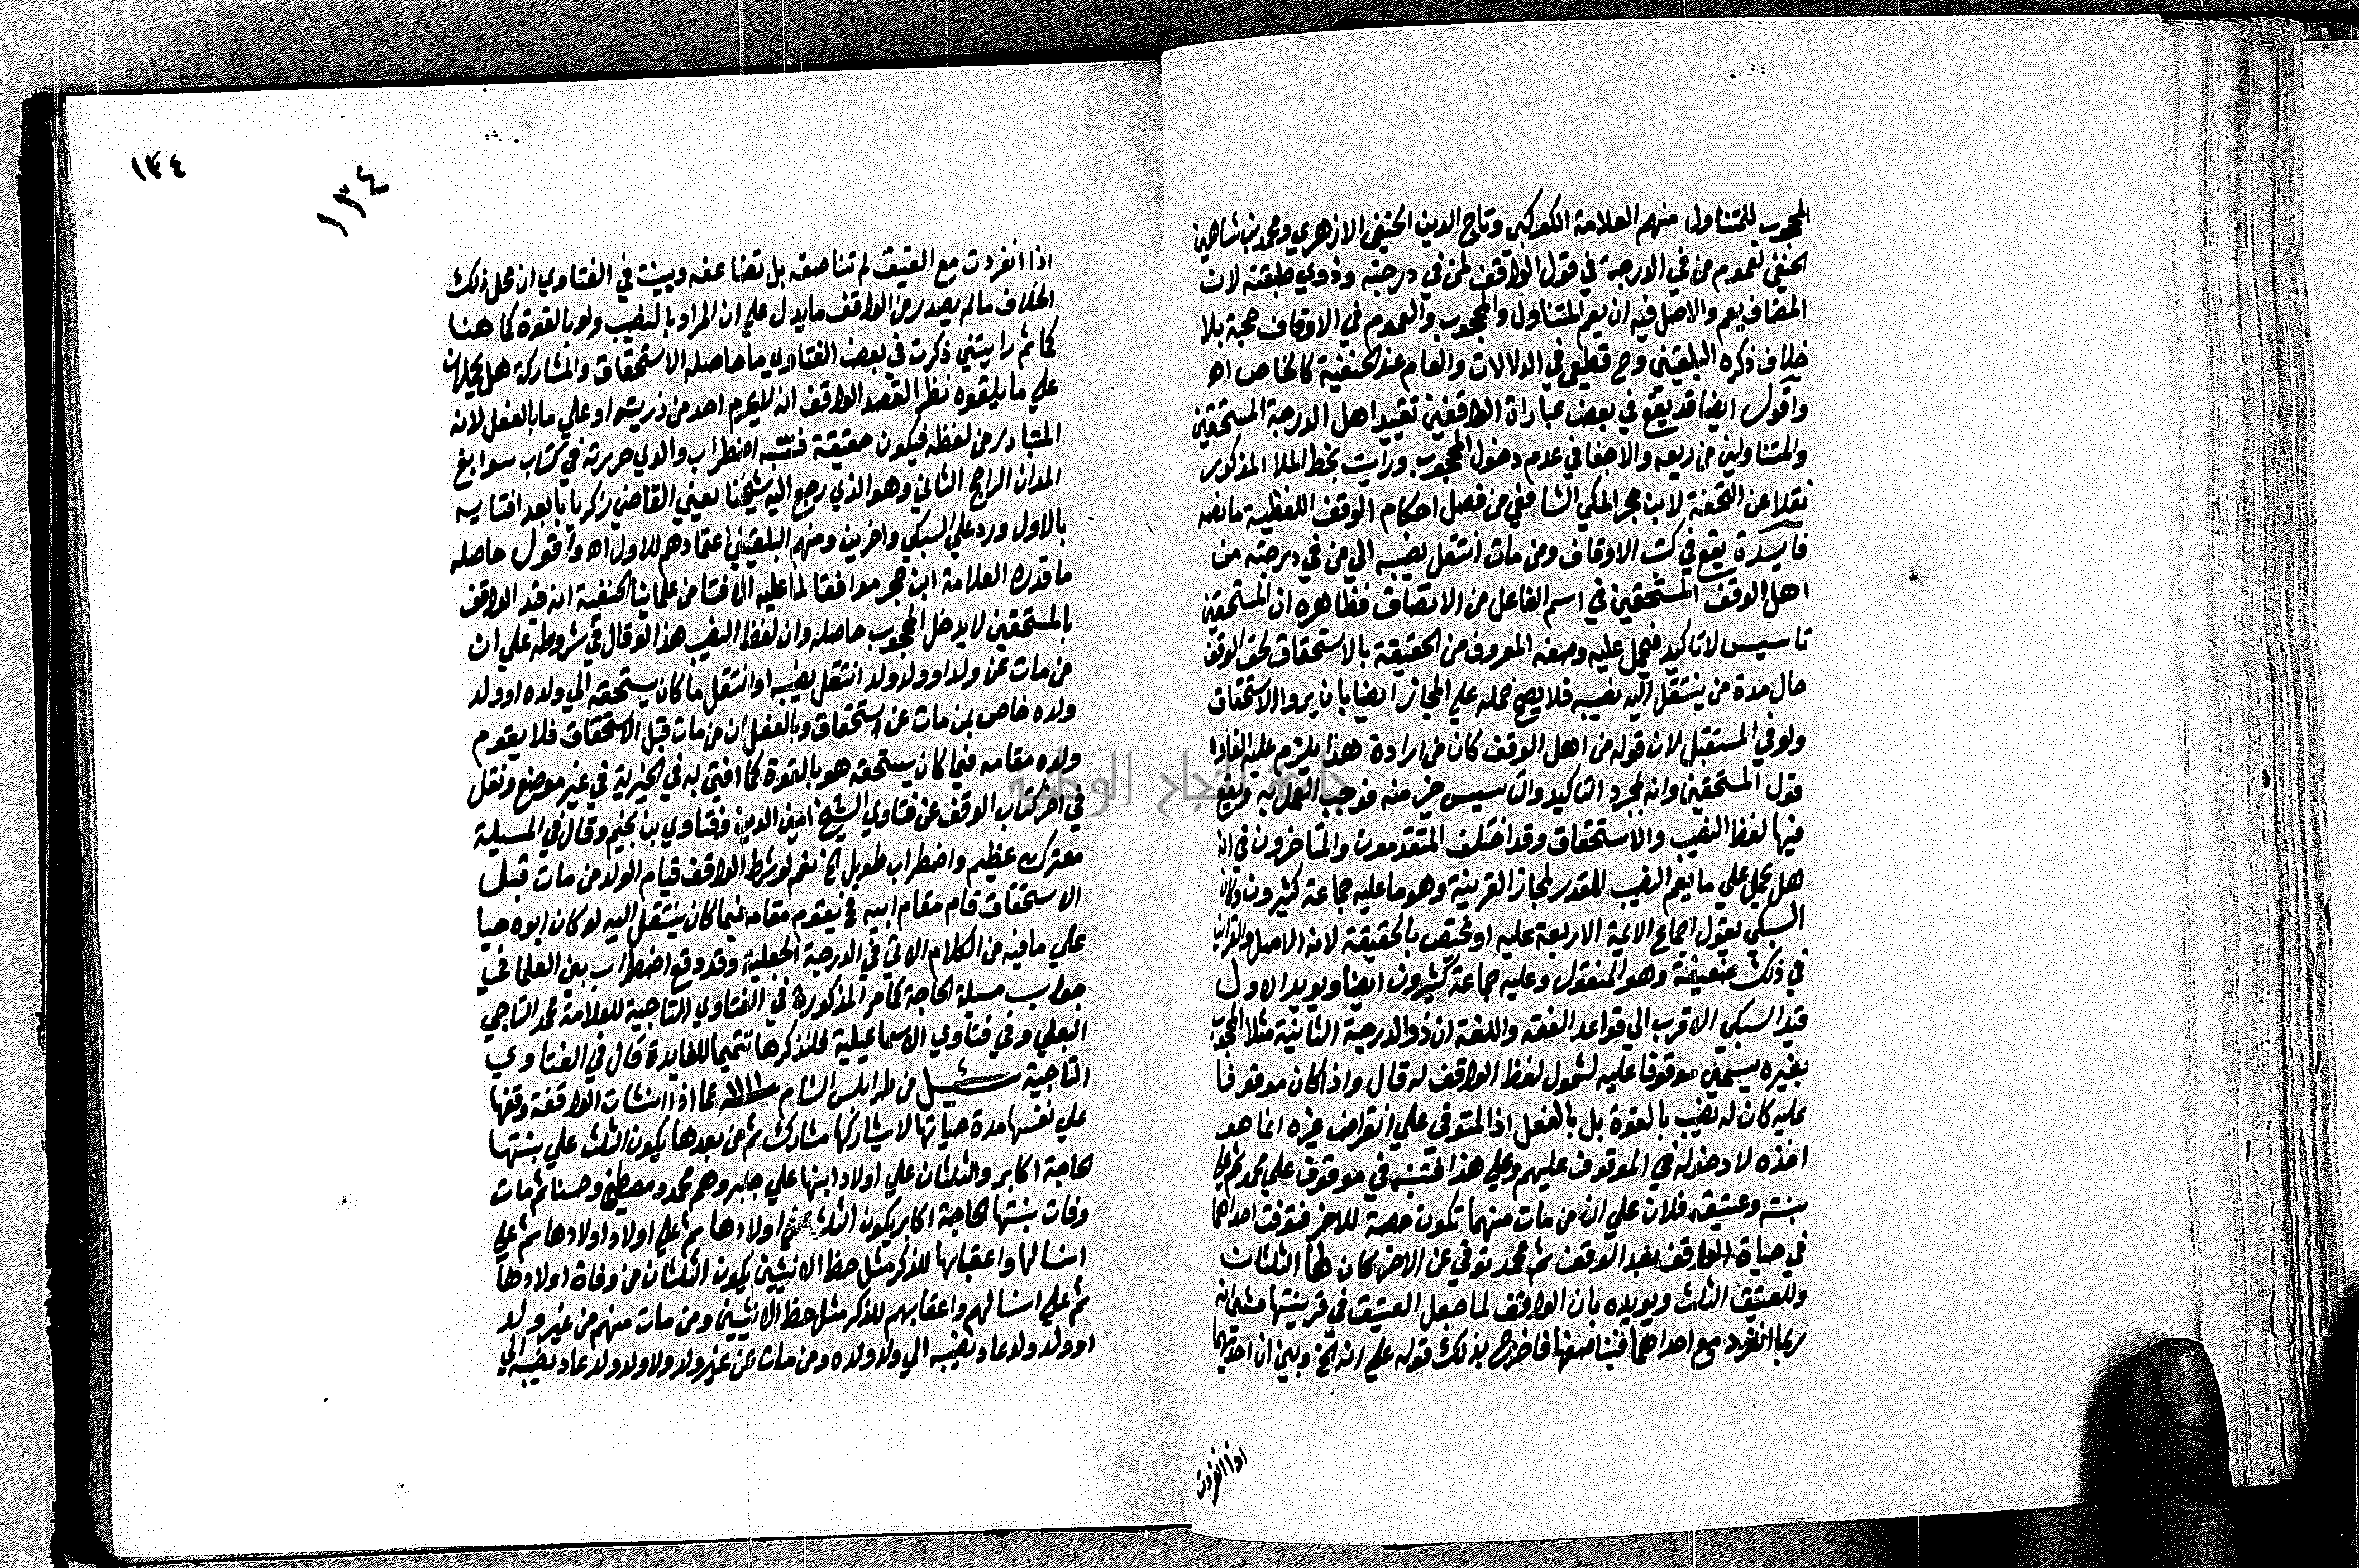 المحجوب للمتناول منهم العلامة الكواكبي وتاج الدين الحنفي الازهري ومحمد بن شاهين
الحنفي لعموم من في الدرجة في قول الواقف لمن في درجته وذوي طبقته لان
المضاف يعم والاصل فيه ان يعم المتناول والمحجوب والعموم في الاوقاف حجة بلا
خلاف ذكره البلقيني وح قطعي في الدلالات والعام عند الحنفية كالخاص اه
واقول ايضا قد يقع في بعض عبارات الواقفين تقييد اهل الدرجة المستحقين
والمتناولين من ريعه ولا خفا في عدم دخول المحجوب ورايت بخط الملا المذكور
نقلا عن التحفة لابن حجر المكي الشافعي من فصل احكام الوقف اللفظية ما نصه
فايدة يقع في كتب الاوقاف ومن مات انتقل نصيبه الي من في درجته من
اهل الوقف المستحقين في اسم الفاعل من الاتصاف فظاهره ان المستحقين
تاسيس لا تاكيد فيحمل عليه وصفه المعروف من الحقيقة بالاستحقاق لحق الوقف
حال مدة من ينتقل اليه نصيبه فلا يصح حمله علي المجاز ايضا بان يروا الاستحقاق
ولو في المستقبل لان قوله من اهل الوقف كان في ارادة هذا يلزم عليه الغا
قول المستحقين وانه لمجرد التاكيد والتاسيس خير منه فوجب العمل به ويقع
فيها لفظ النصيب والاستحقاق وقد اختلف المتقدمون والمتاخرون في انه
هل يحمل علي ما يعم النصيب المقدر لمجاز القرينة وهو ما عليه جماعة كثيرون وكان
السبكي يقول اجماع الايمة الاربعة عليه او يختص بالحقيقة لانه الاصل والقراين
في ذلك ضعيفة وهو المنقول وعليه جماعة كثيرون ايضا ويويد الاول
قول السبكي الاقرب الي قواعد الفقه واللغة ان ذو الدرجة الثانية مثلا المحجوب
بغيره يسمي موقوفا عليه لشمول لفظ الواقف له قال واذا كان موقوفا
عليه كان له نصيب بالقوة بل بالفعل اذ المتوقف علي انقراض غيره انما هو
اخذه لا دخوله في الموقوف عليهم وعلي هذا في موقوف علي محمد ثم علي
بنته وعتيقه فلان علي ان من مات منهما تكون حصة للاخر فتوفت احداهما
في حياة الواقف بعد الوقف ثم محمد توفي عن الاخر كان لها الثلثان
وللعتيق الثلث ويويده بان الواقف لما جعل العتيق في قرينتها مثلي انه
ربما انفرد مع احداهما فيناصفها فاخرج بذلك قوله علي انه الخ وبين ان احديهما
اذا انفردت
١٣٤
١٣٤
اذا انفردت مع العتيق لم تناصفه بل تضاعفه وبينت في الفتاوي ان محل ذلك
الخلاف ما لم يصدر من الواقف ما يدل علي ان المراد بالنصيب ولو بالقوة كما هنا
كما ثم رايتني ذكرت في بعض الفتاوي ما حاصله الاستحقاق والمشاركة هل يحملان
علي ما بالقوه نظرا لقصد الواقف ان لا يحرم احد من ذريته او علي ما بالفعل لانه
المتبادر من لفظه فيكون حقيقة فيه اضطراب والدي حررته في كتاب سوابغ
المدد ان الراجح الثاني وهو الذي رجع اليه شيخنا يعني القاضي زكريا بعد افتايه
بالاول ورد علي السبكي واخرين ومنهم البلقيني اعتمادهم للاول اه واقول حاصله
ما قدره العلامة ابن حجر موافقا لما عليه الافتا من علماينا الحنفية انه قيد الواقف
بالمستحقين لا يدخل المحجوب حاصله وان لفظ النصيب هذا لو قال في شروطه علي ان
من مات عن ولد او ولد ولد انتقل نصيبه او انتقل ما كان يستحقه الي ولده او ولد
ولده خاص بمن مات عن استحقاق وبالفعل ان من مات قبل الاستحقاق فلا يقوم
ولده مقامه فيما كان يستحقه هو بالقوة كما افتي به في الخيرية في غير موضع ونقل
في اخر كتاب الوقف عن فتاوي الشيخ امين الدين وفتاوي بن نجيم وقال في المسيلة
معترك عظيم واضطراب طويل الخ نعم لو شرط الواقف قيام الولد من مات قبل
الاستحقاق قام مقام ابيه فح يقوم مقامه فيما كان ينتقل اليه لو كان ابوه حيا
علي ما فيه من الكلام الاتي في الدرجة الجعلية وقد وقع اضطراب بين العلما في
جواب مسيلة الحاجة كما مر المذكورة في الفتاوي التاجية للعلامة محمد التاجي
البعلي وفي فتاوي الاسماعيلية فلنذكرها تتميما للفايدة قال في الفتاوي
التاجية سيل من طرابلس الشام سنة ١١١١ عما اذا انشات الواقفة وقفها
علي نفسها مدة حياتها لا يشاركها مشارك ثم من بعدها يكون الثلث علي بنتها
الحاجة اكابر والثلثان علي اولاد ابنها علي جابر وهم محمد ومصطفي وحسنا ثم مات
وفات بنتها الحاجة اكابر يكون الثلث علي اولادها ثم علي اولاد اولادها ثم علي
انسالها واعقابها للذكر مثل حظ الانثيين يكون الثلثان من وفاة اولادها
ثم علي انسالهم واعقابهم للذكر مثل حظ الانثيين ومن مات منهم من غير ولد
او ولد ولد عاد نصيبه الي ولد ولده ومن مات عن غير ولد ولا ولد ولد عاد نصيبه الي